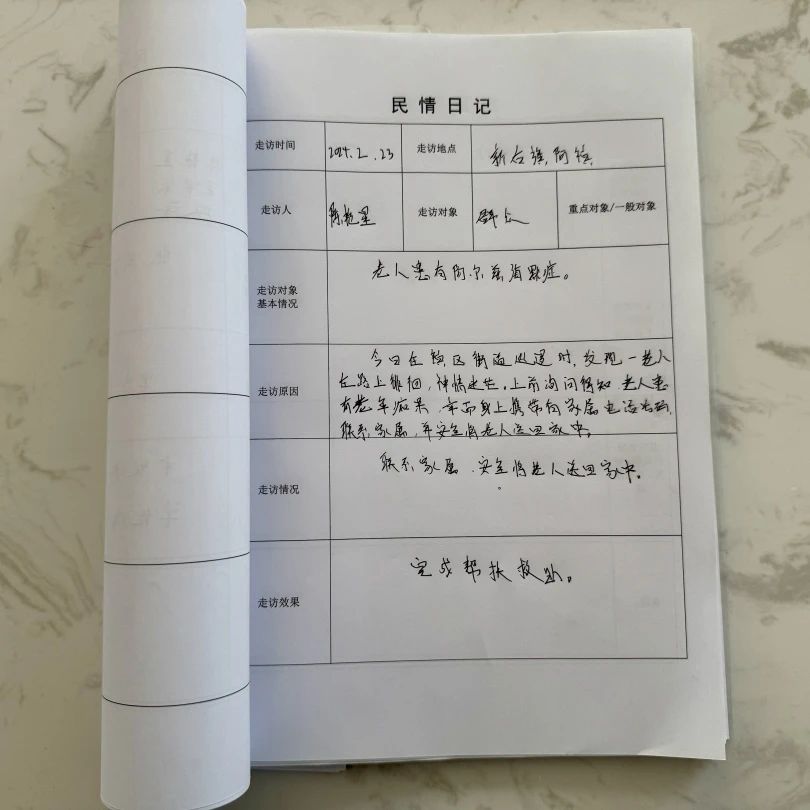 民情日记
走访时间 2024.2.23 走访地点
走访人 陈 走访对象 群众 重点对象/一般对象
走访对象
基本情况
老人患有阿尔兹海默症。
今日在辖区街面巡逻时,发现一老人
走访原因
在路上徘徊,神情迷茫。上前询问得知老人患
有老年痴呆,幸而身上携带有家属电话号码,
联系家属,并安全将老人送回家中。
走访情况 联系家属,安全将老人送回家中。
走访效果 完成帮扶救助。